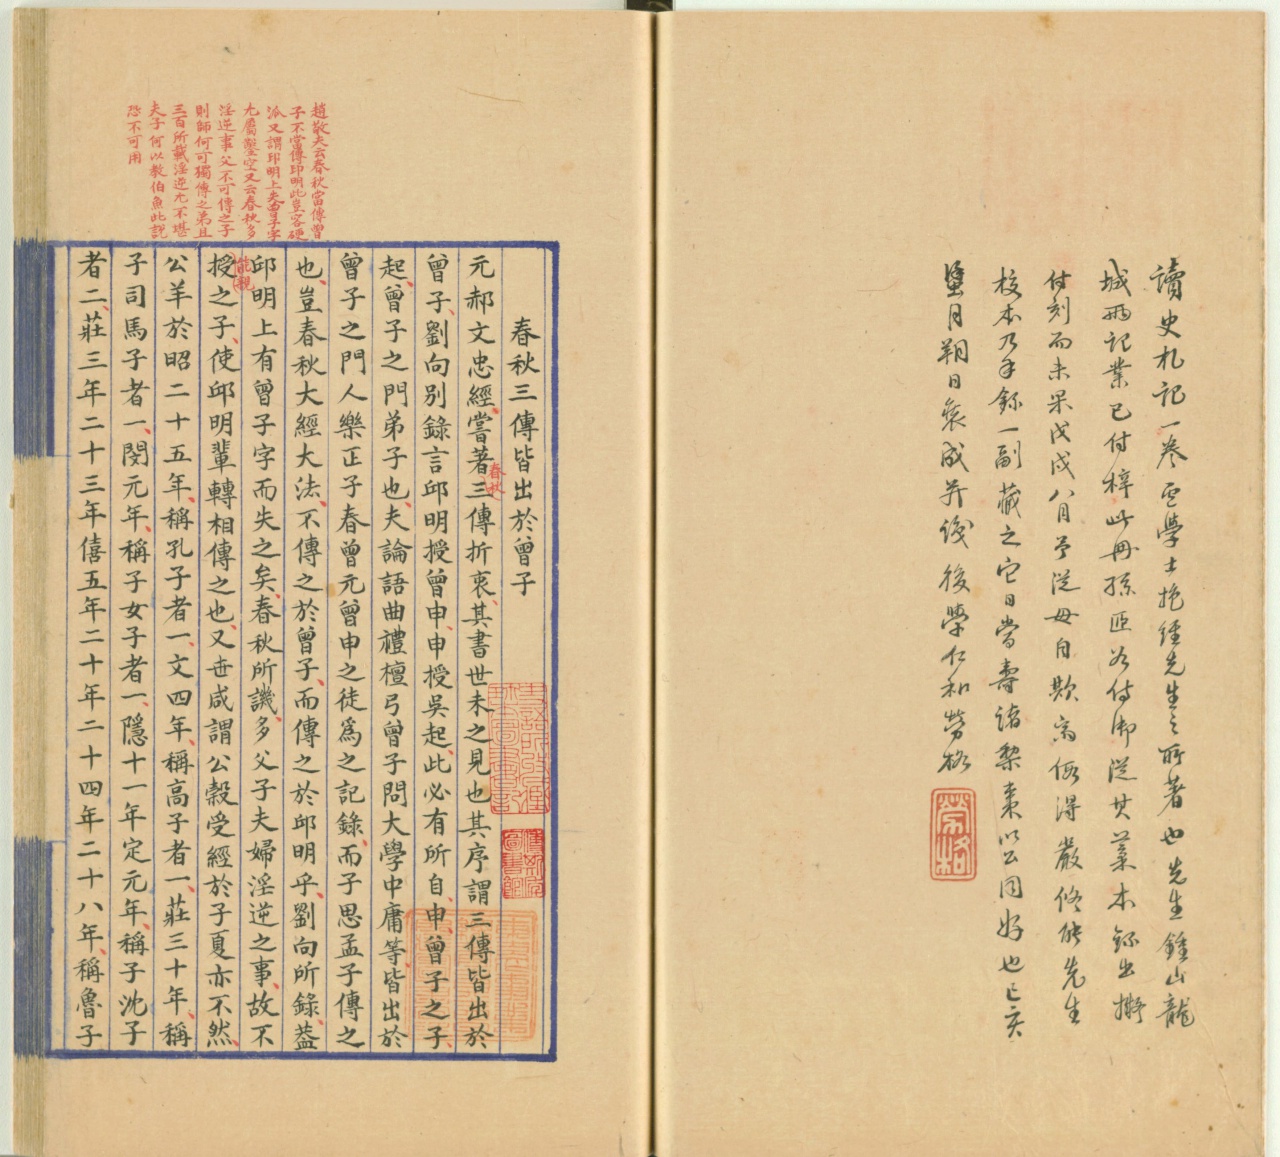 讀史札記一卷盧學士抱經先生之所著也先生鍾山龍
城兩記業已付梓此冊孫匪石侍御從其藁本錄出擬
付刻而未果戊戌八月予從毋自欺齋假得嚴修能先生
校本乃手錄一副藏之它日當壽諸棃棗以公同好也己亥
朔日裝成并識後學仁和勞格
勞格
趙敬夫云春秋當傳曾
子不當傳邱明此豈容硬
派又謂邱明上失曾子字
尤屬鑿空又云春秋多
淫逆事父不可傳之子
則師何可獨傳之弟且
三百所載淫逆尤不堪
夫子何以教伯魚此說
恐不可用
春秋三傳皆出於曾子
元郝文忠經嘗著三傳折衷其書世未之見也其序謂三傳皆出於
春秋
曾子劉向別錄言邱明授曾申申授吳起此必有所自申曾子之子
起曾子之門弟子也夫論語曲禮檀弓曾子問大學中庸等皆出於
曾子之門人樂正子春曾元曾申之徒爲之記錄而子思孟子傳之
也豈春秋大經大法不傳之於曾子而傳之於邱明乎劉向所錄葢
邱明上有曾子字而失之矣春秋所譏多父子夫婦淫逆之事故不
能親
授之子使邱明輩轉相傳之也又世咸謂公穀受經於子夏亦不然
公羊於昭二十五年稱孔子者一文四年稱高子者一莊三十年稱
子司馬子者一閔元年稱子女子者一隱十一年定元年稱子沈子
者二莊三年二十三年僖五年二十年二十四年二十八年稱魯子